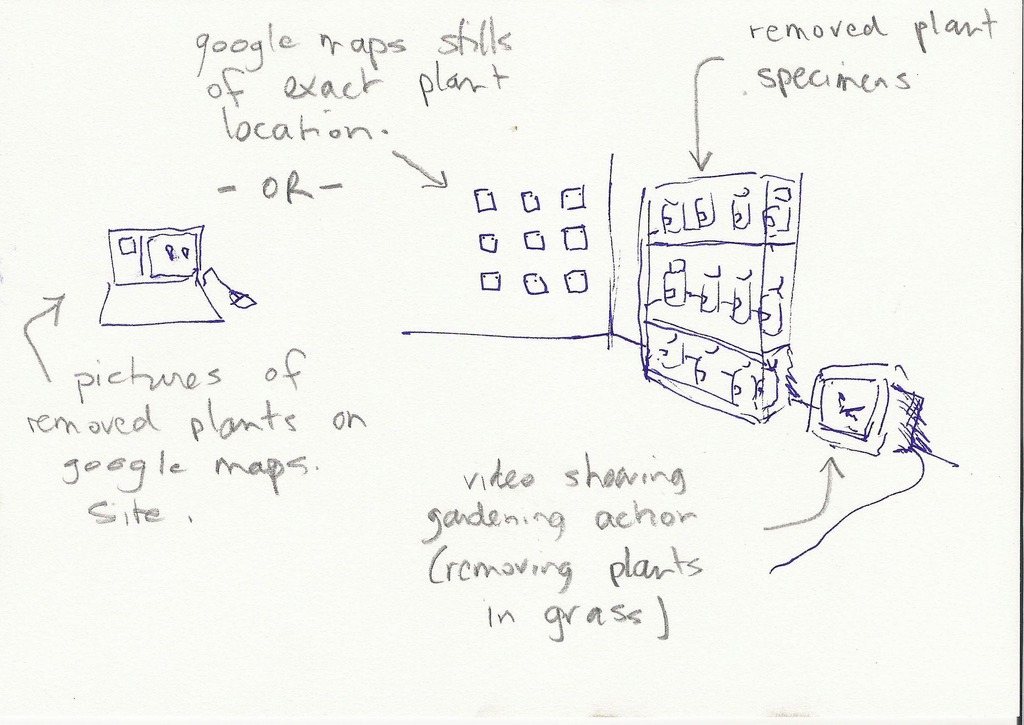 google maps stills
of exact plant
location.
- OR -
removed plant
specimens
pictures of
removed plants on
google maps.
site.
video showing
gardening action
(removing plants
in grass)